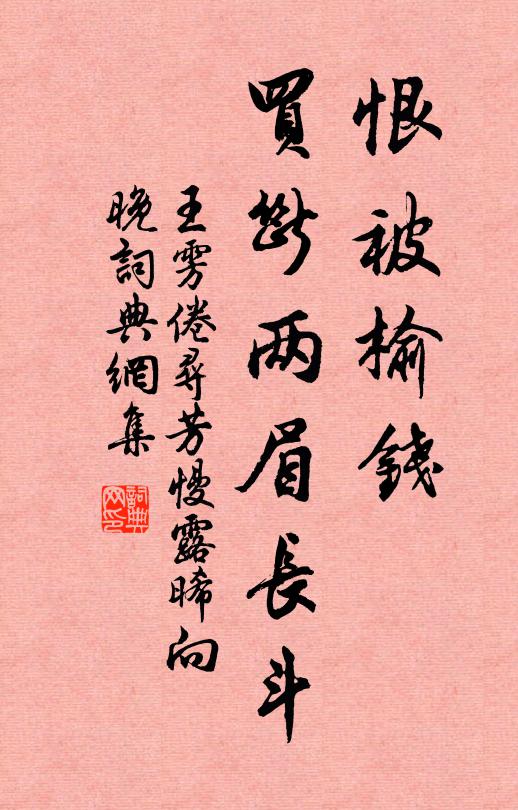 恨被榆錢
買斷两眉長斗
王雱倦尋芳慢露晞向
晚詞典網集
詞典
网印